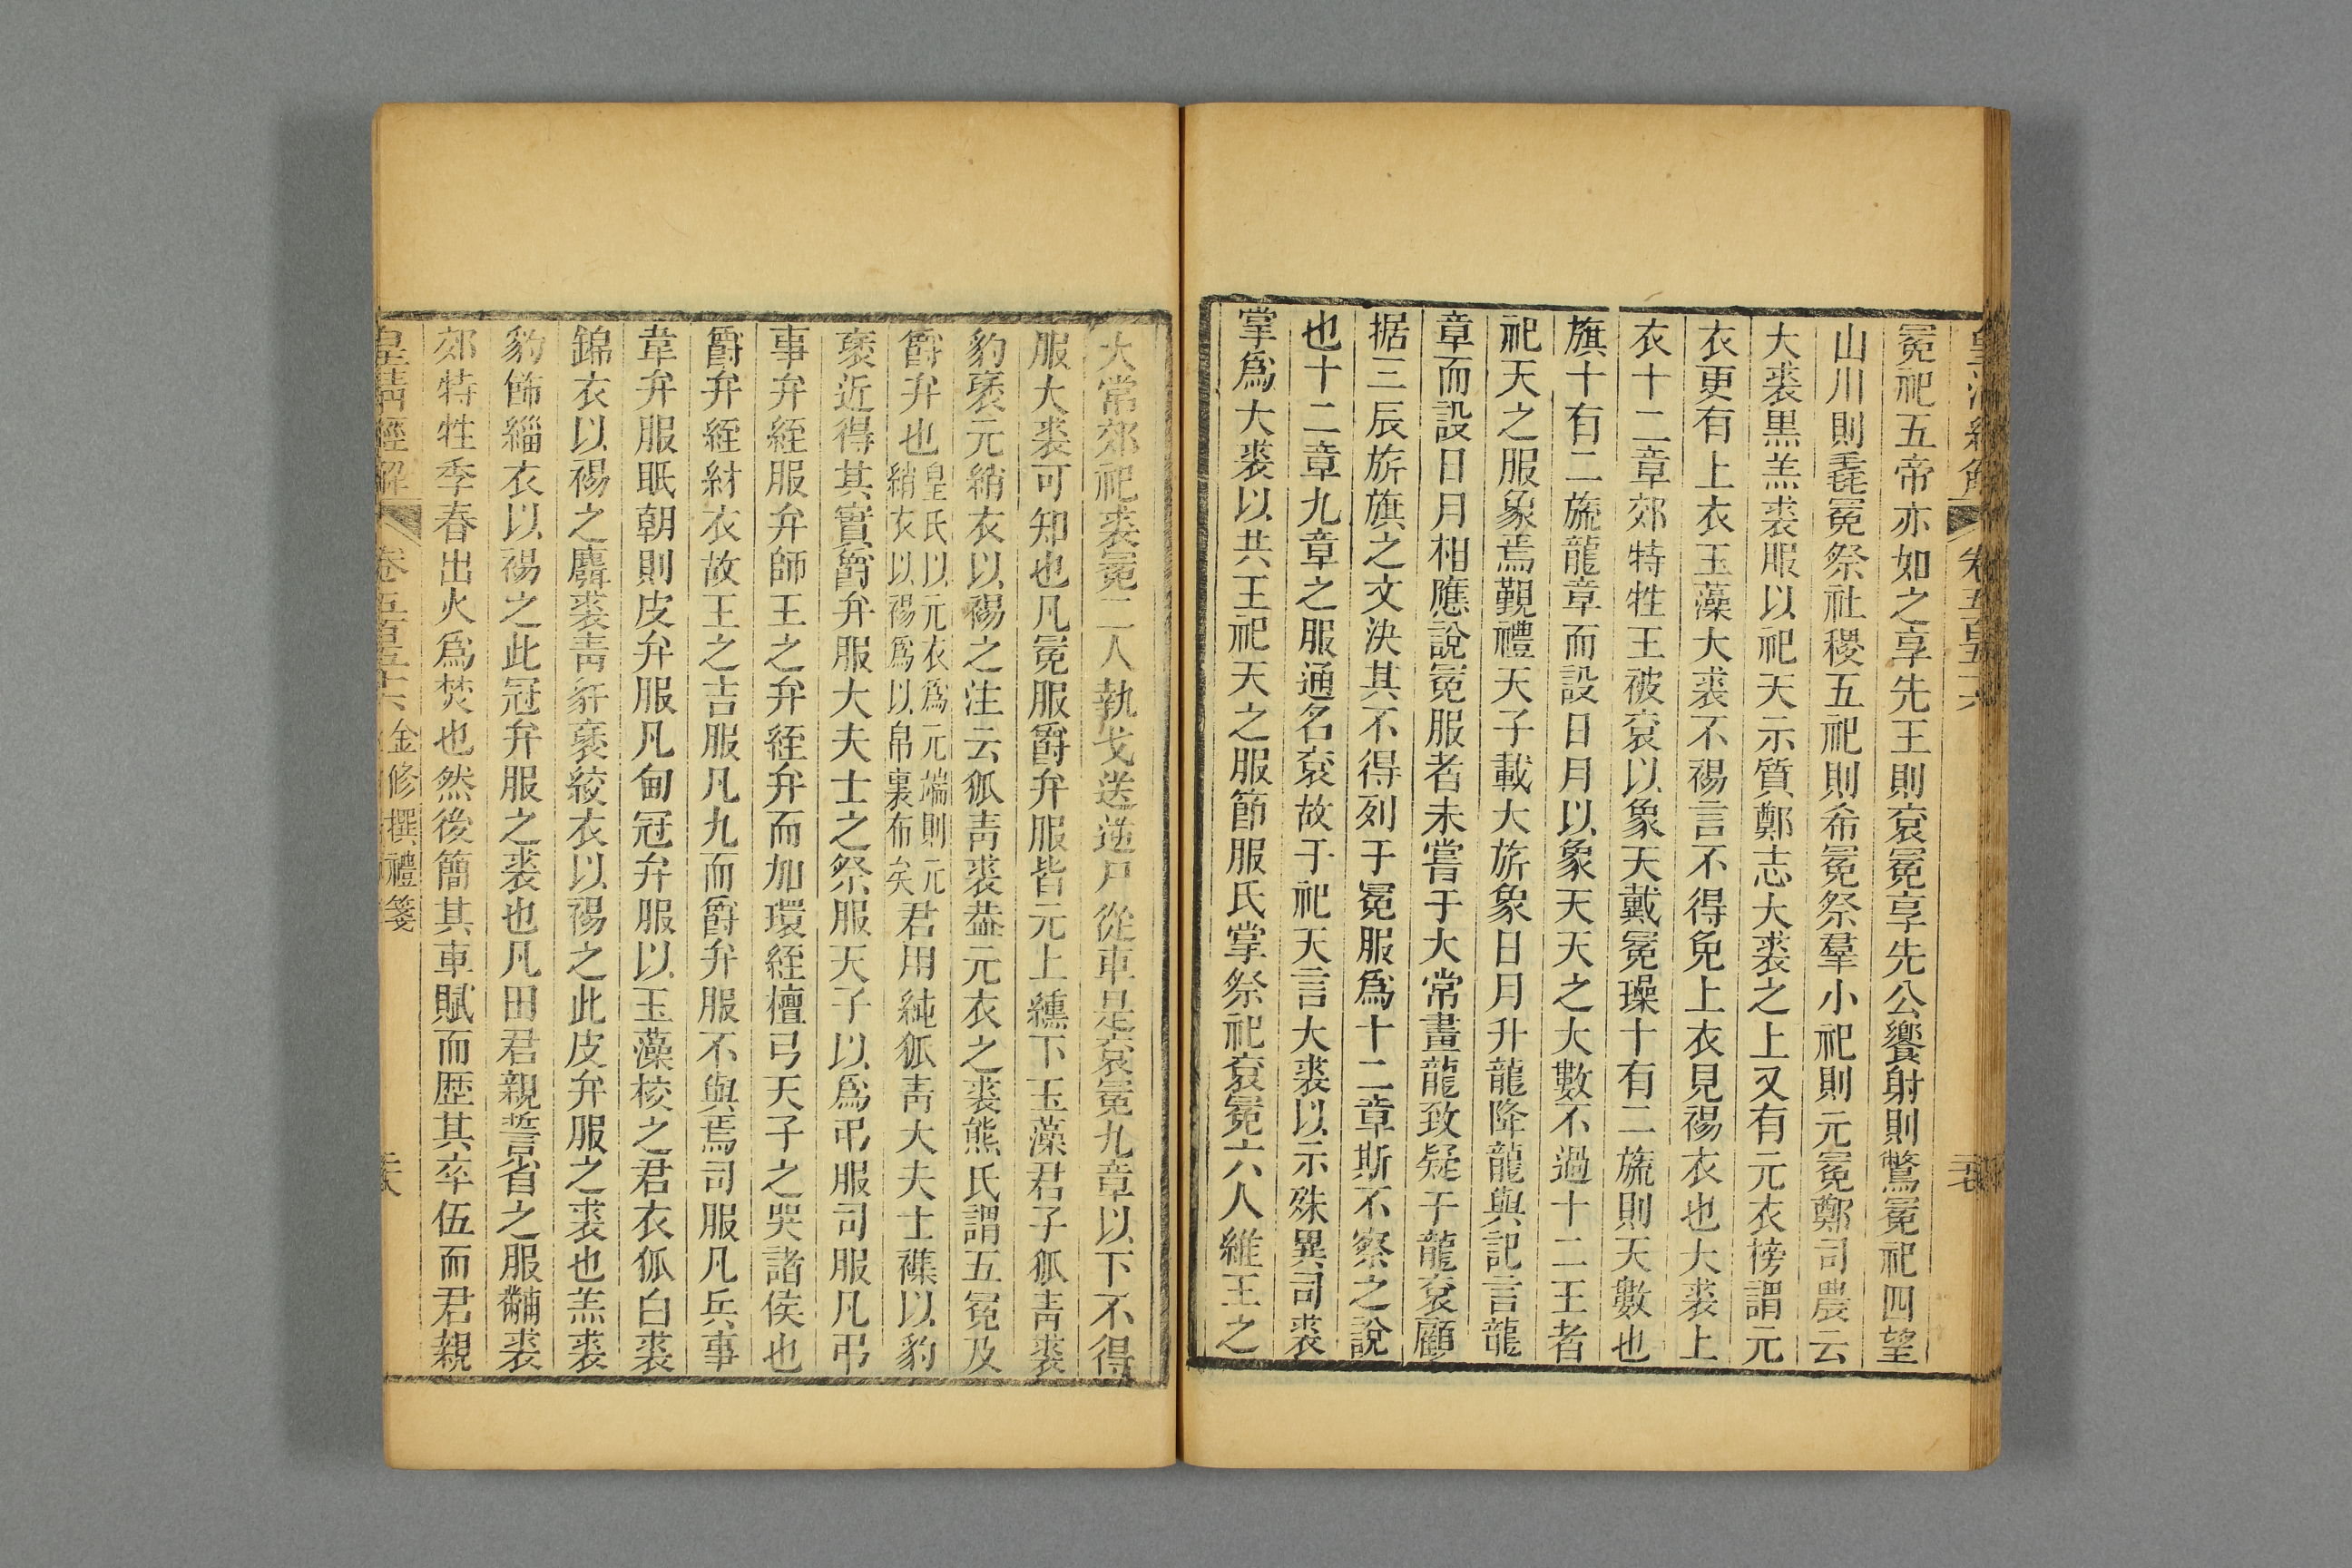 皇清經解 卷五百五十六
冕祀五帝亦如之享先王則袞冕享先公饗射則鷩冕祀四望
山川則毳冕祭社稷五祀則希冕祭羣小祀則元冕鄭司農云
大裘黑羔裘服以祀天示質鄭志大裘之上又有元衣㮄謂元
衣更有上衣玉藻大裘不裼言不得免上衣見裼衣也大裘上
衣十二章郊特牲王被袞以象天戴冕璪十有二旒則天數也
旗十有二旒龍章而設日月以象天天之大數不過十二王者
祀天之服象焉覲禮天子載大旂象日月升龍降龍與記言龍
章而設日月相應說冕服者未嘗于大常畫龍致疑于龍袞顧
据三辰旂旗之文決其不得列于冕服爲十二章斯不察之說
也十二章九章之服通名袞故于祀天言大裘以示殊異司裘
掌爲大裘以共王祀天之服節服氏掌祭祀袞冕六人維王之
大常郊祀裘冕二人執戈送逆尸從車是袞冕九章以下不得
服大裘可知也凡冕服爵弁服皆元上纁下玉藻君子狐青裘
豹褎元綃衣以裼之注云狐青裘葢元衣之裘熊氏謂五冕及
爵弁也皇氏以元衣爲元端則元綃衣以裼爲以帛裏布矣君用純狐青大夫士襍以豹
褎近得其實爵弁服大夫士之祭服天子以爲弔服司服凡弔
事弁絰服弁師王之弁絰弁而加環絰檀弓天子之哭諸侯也
爵弁絰紂衣故王之吉服凡九而爵弁服不與焉司服凡兵事
韋弁服眂朝則皮弁服凡甸冠弁服以玉藻校之君衣狐白裘
錦衣以裼之麛裘青豻褎絞衣以裼之此皮弁服之裘也羔裘
豹飾緇衣以裼之此冠弁服之裘也凡田君親誓省之服黼裘
郊特牲季春出火爲焚也然後簡其車賦而歷其卒伍而君親
皇清經解 卷五百五十六 金修撰禮箋 二六